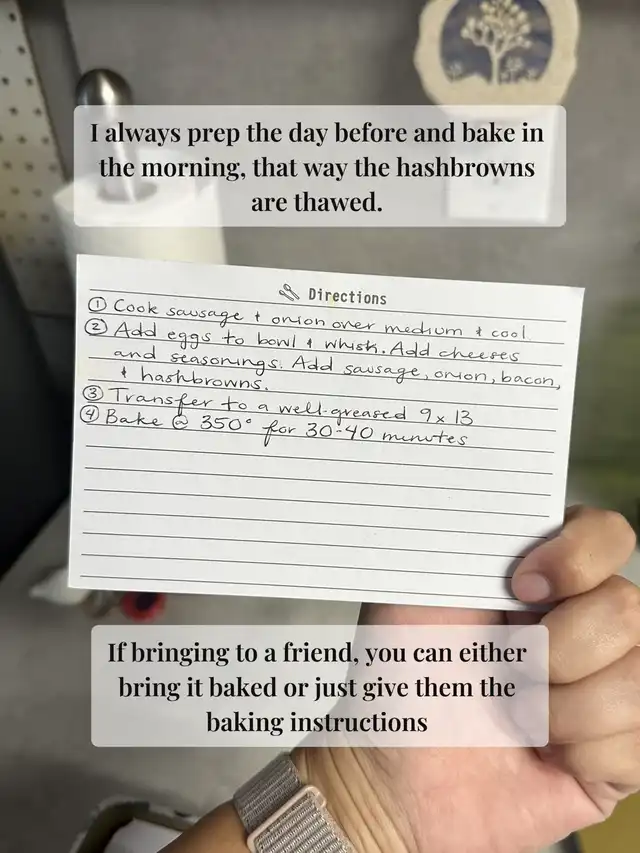 I always prep the day before and bake in
the morning, that way the hashbrowns
are thawed.
Directions
① Cook sausage + onion over medium + cool
② Add eggs to bowl + whisk. Add cheeses
and seasonings. Add sausage, onion, bacon,
+ hashbrowns.
③ Transfer to a well-greased 9x13
④ Bake @ 350° for 30-40 minutes
If bringing to a friend, you can either
bring it baked or just give them the
baking instructions